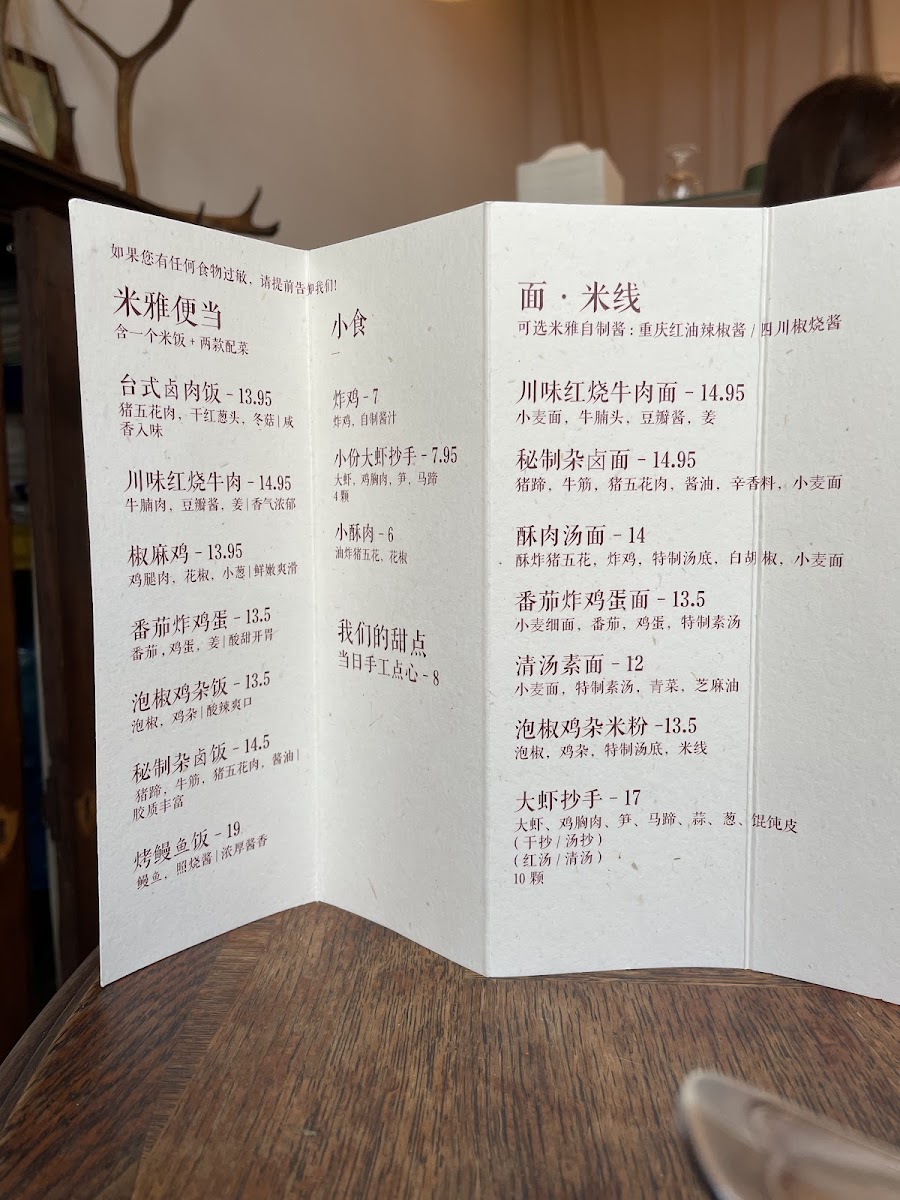 如果您有任何食物过敏，请提前告知我们!
米雅便当
含一个米饭 + 两款配菜
台式卤肉饭 – 13.95
猪五花肉，干红葱头，冬菇 | 咸
香入味
川味红烧牛肉 – 14.95
牛腩肉，豆瓣酱，姜 | 香气浓郁
椒麻鸡 – 13.95
鸡腿肉，花椒，小葱 | 鲜嫩爽滑
番茄炸鸡蛋 – 13.5
番茄，鸡蛋，姜 | 酸甜开胃
泡椒鸡杂饭 – 13.5
泡椒，鸡杂 | 酸辣爽口
秘制杂卤饭 – 14.5
猪蹄，牛筋，猪五花肉，酱油 |
胶质丰富
烤鳗鱼饭 – 19
鳗鱼，照烧酱 | 浓厚酱香
小食
—
炸鸡 – 7
炸鸡，自制酱汁
小份大虾抄手 – 7.95
大虾，鸡胸肉，笋，马蹄
4 颗
小酥肉 – 6
油炸猪五花，花椒
我们的甜点
当日手工点心 – 8
面 · 米线
可选米雅自制酱 : 重庆红油辣椒酱 / 四川椒烧酱
川味红烧牛肉面 – 14.95
小麦面，牛腩头，豆瓣酱，姜
秘制杂卤面 – 14.95
猪蹄，牛筋，猪五花肉，酱油，辛香料，小麦面
酥肉汤面 – 14
酥炸猪五花，炸鸡，特制汤底，白胡椒，小麦面
番茄炸鸡蛋面 – 13.5
小麦细面，番茄，鸡蛋，特制素汤
清汤素面 – 12
小麦面，特制素汤，青菜，芝麻油
泡椒鸡杂米粉 –13.5
泡椒，鸡杂，特制汤底，米线
大虾抄手 – 17
大虾、鸡胸肉、笋、马蹄、蒜、葱、馄饨皮
( 干抄 / 汤抄 )
( 红汤 / 清汤 )
10 颗